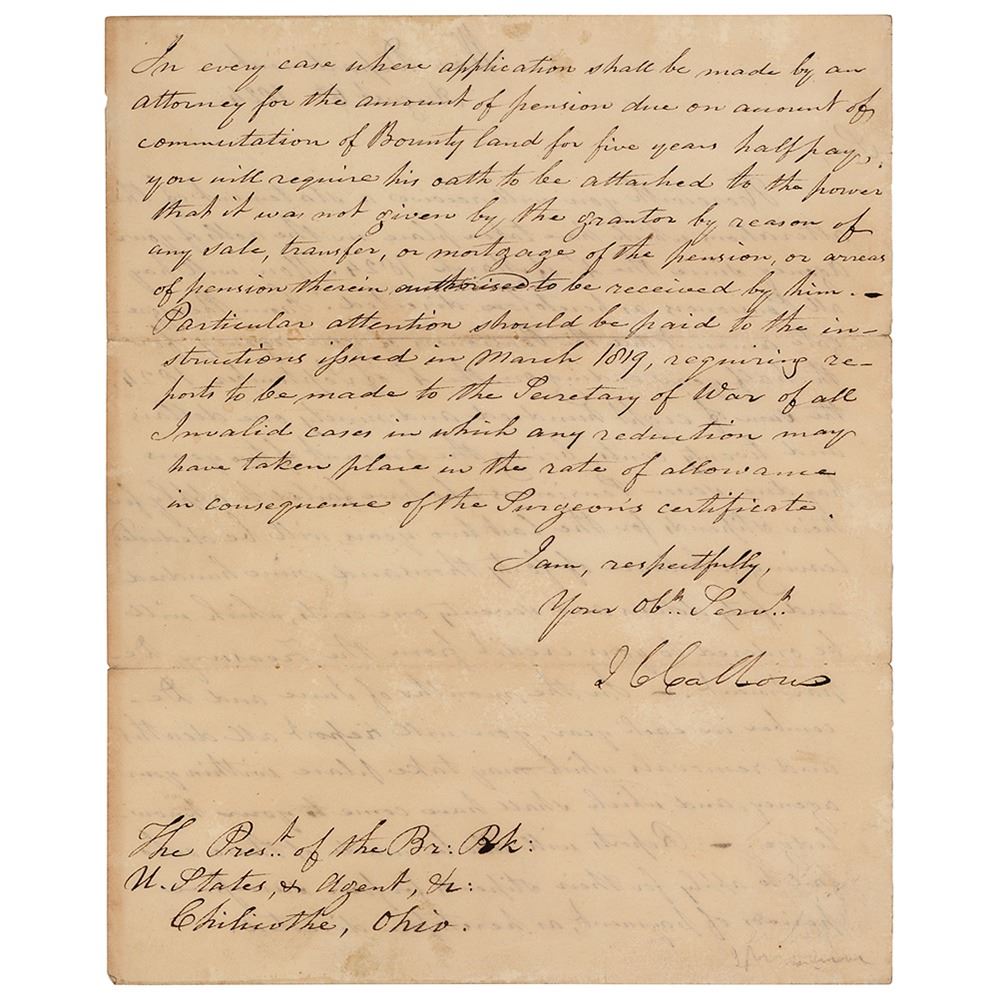 In every case where application shall be made by an
attorney for the amount of pension due on account of
commutation of Bounty land for five years half pay,
you will require his oath to be attached to the power
that it was not given by the grantor by reason of
any sale, transfer, or mortgage of the pension, or arrears
of pension therein authorised to be received by him. –
Particular attention should be paid to the in–
structions issued in March 1819, requiring re–
ports to be made to the Secretary of War of all
Invalid cases in which any reduction may
have taken place in the rate of allowance
in consequence of the Surgeon's certificate.
I am, respectfully,
Your Obt. Servt.
J C Calhoun
The Prest. of the Br: Bk:
U. States, & Agent, &c:
Chilicothe, Ohio.